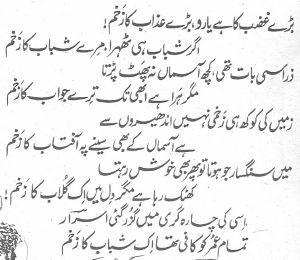 بڑے غضب کا ہے یارو، بڑے عذاب کا زخم!
اگر شباب ہی ٹھہرا، مرے شباب کا زخم
ذرا سی بات تھی، کچھ آسماں نہ پھٹ پڑتا
مگر ہرا ہے ابھی تک ترے جواب کا زخم
زمیں کی کوکھ ہی زخمی نہیں اندھیروں سے
ہے آسماں کے بھی سینے پہ آفتاب کا زخم
میں سنگسار جو ہوتا تو پھر بھی خوش رہتا
کھٹک رہا ہے مگر دل میں اک گلاب کا زخم!
اسی کی چارہ گری میں گزر گئی اسرار
تمام عمر کو کافی تھا اک شباب کا زخم